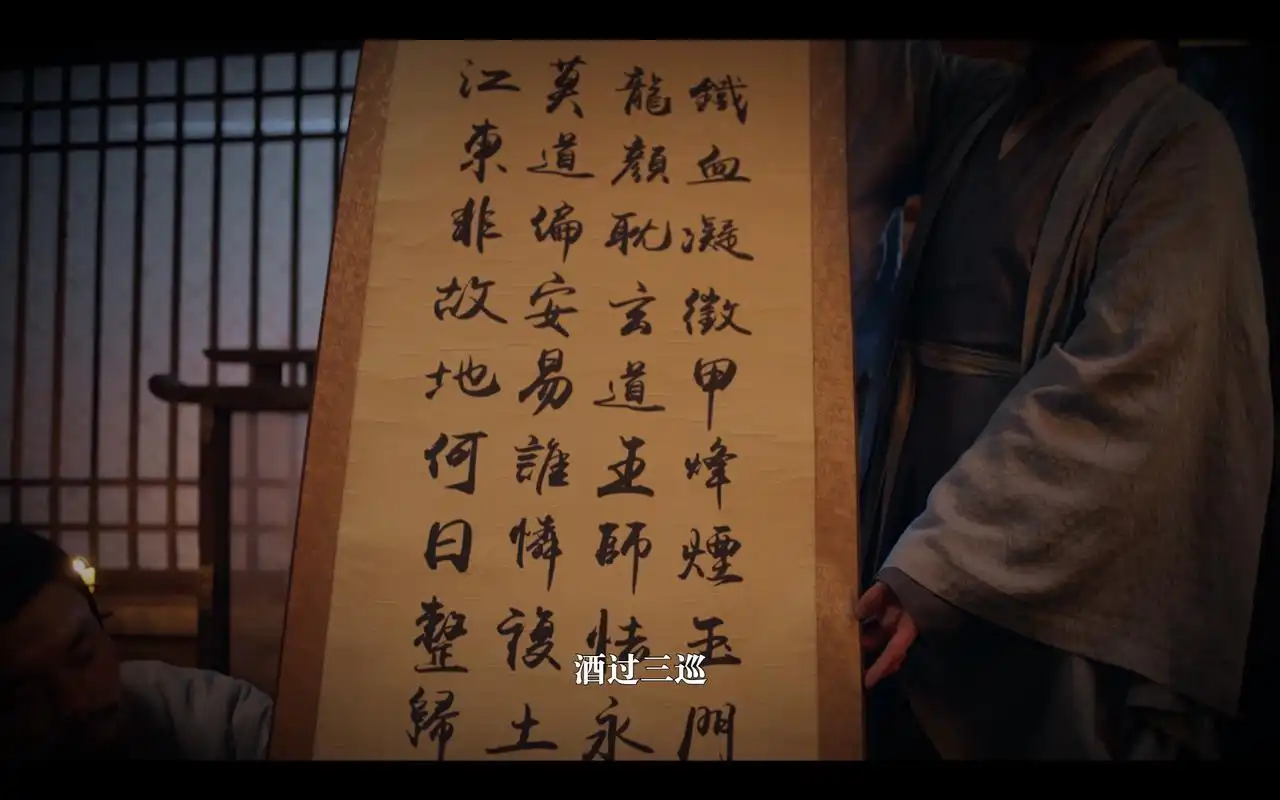 鐵血凝徵甲烽煙玉門
龍顏耽玄道王師永
莫道偏安易誰憐複土
江東非故地何日整歸
酒过三巡